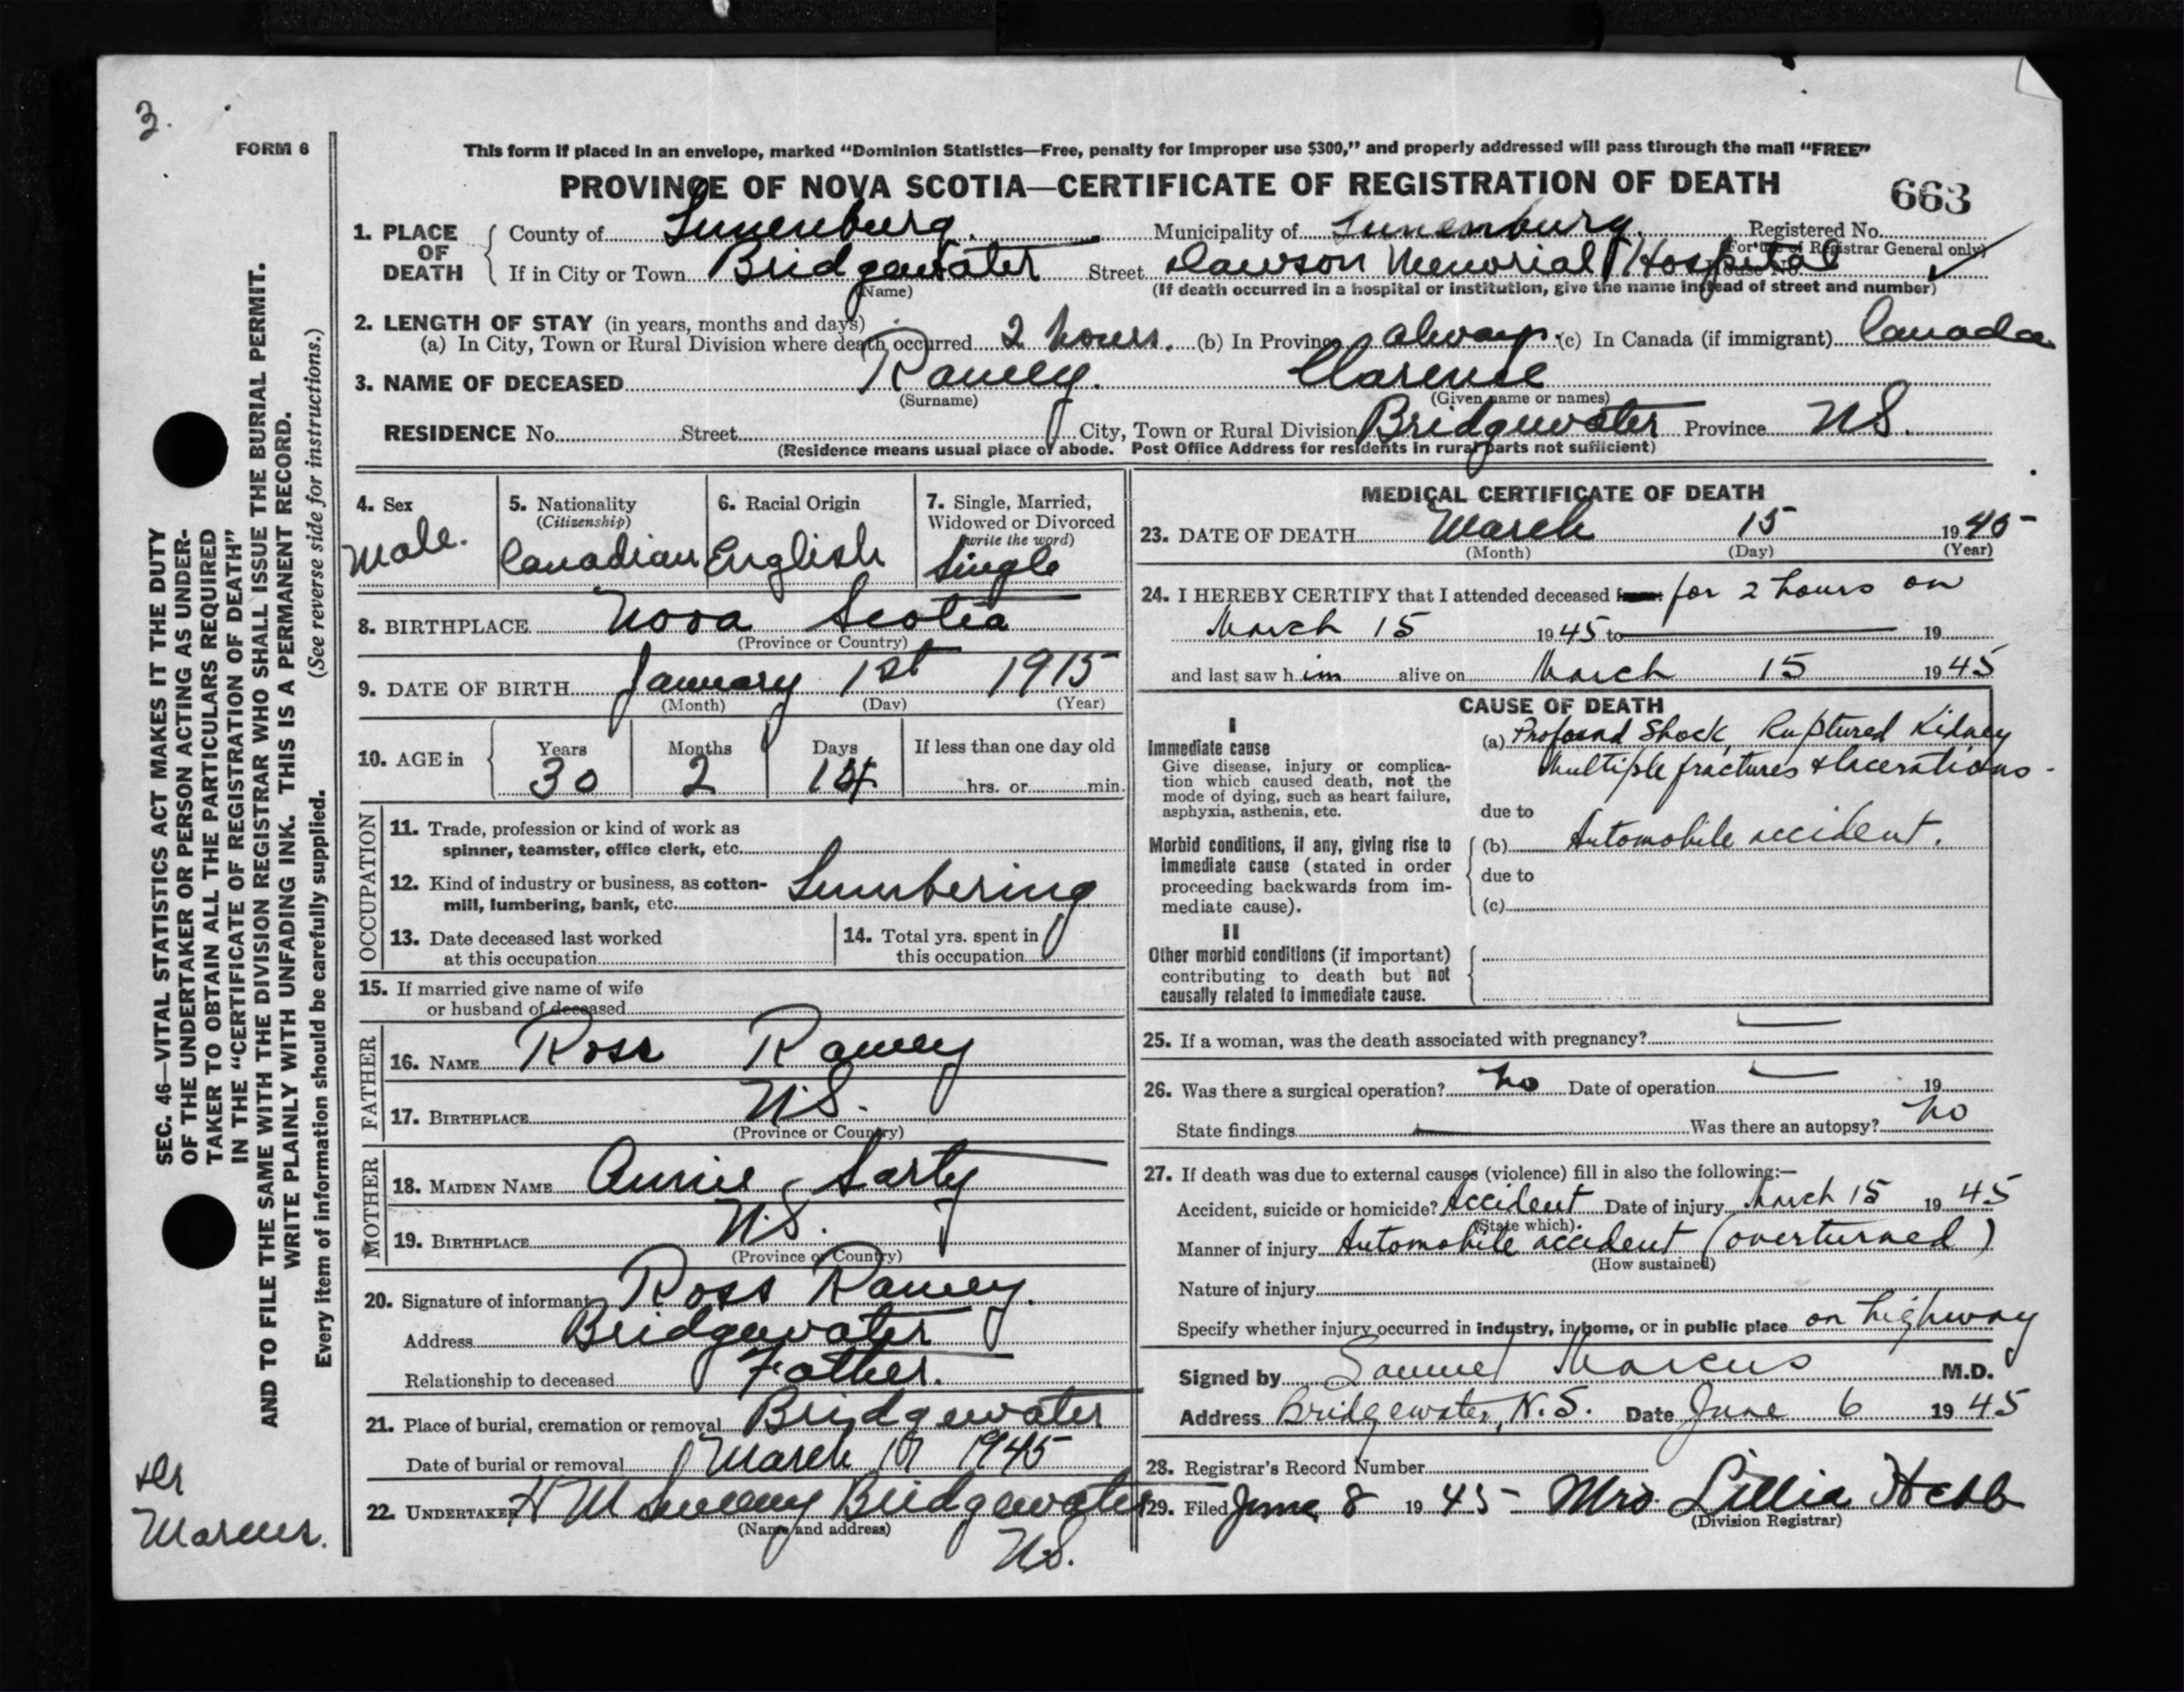 3.
FORM 6
This form if placed in an envelope, marked "Dominion Statistics—Free, penalty for improper use $300," and properly addressed will pass through the mail "FREE"
PROVINCE OF NOVA SCOTIA—CERTIFICATE OF REGISTRATION OF DEATH
663
1. PLACE OF DEATH { County of Lunenburg. Municipality of Lunenburg. Registered No.
(For use of Registrar General only)
If in City or Town Bridgewater Street Dawson Memorial Hospital House No.
(Name) (If death occurred in a hospital or institution, give the name instead of street and number)
2. LENGTH OF STAY (in years, months and days)
(a) In City, Town or Rural Division where death occurred 2 hours. (b) In Province always (c) In Canada (if immigrant) Canada
3. NAME OF DECEASED Ramey. Clarence
(Surname) (Given name or names)
RESIDENCE No. Street City, Town or Rural Division Bridgewater Province N.S.
(Residence means usual place of abode. Post Office Address for residents in rural parts not sufficient)
4. Sex
Male.
5. Nationality
(Citizenship)
Canadian
6. Racial Origin
English
7. Single, Married,
Widowed or Divorced
(write the word)
Single
8. BIRTHPLACE Nova Scotia
(Province or Country)
9. DATE OF BIRTH January 1st 1915
(Month) (Day) (Year)
10. AGE in { Years Months Days If less than one day old
30 2 14 hrs. or min.
OCCUPATION
11. Trade, profession or kind of work as
spinner, teamster, office clerk, etc.
12. Kind of industry or business, as cotton-
mill, lumbering, bank, etc. Lumbering
13. Date deceased last worked
at this occupation
14. Total yrs. spent in
this occupation
15. If married give name of wife
or husband of deceased
FATHER
16. NAME Ross Ramey
17. BIRTHPLACE N.S.
(Province or Country)
MOTHER
18. MAIDEN NAME Annie Sarty
19. BIRTHPLACE N.S.
(Province or Country)
20. Signature of informant Ross Ramey.
Address Bridgewater
Relationship to deceased Father.
21. Place of burial, cremation or removal Bridgewater
Date of burial or removal March 17 1945
22. UNDERTAKER H M Sweeny Bridgewater
(Name and address)
N.S.
MEDICAL CERTIFICATE OF DEATH
23. DATE OF DEATH March 15 1945
(Month) (Day) (Year)
24. I HEREBY CERTIFY that I attended deceased from for 2 hours on
March 15 1945 to 19
and last saw him alive on March 15 1945
CAUSE OF DEATH
I
Immediate cause
Give disease, injury or complica-
tion which caused death, not the
mode of dying, such as heart failure,
asphyxia, asthenia, etc.
(a) Profound Shock, Ruptured Kidney
Multiple fractures & lacerations -
due to
Morbid conditions, if any, giving rise to
immediate cause (stated in order
proceeding backwards from im-
mediate cause).
(b) Automobile accident.
due to
(c)
II
Other morbid conditions (if important)
contributing to death but not
causally related to immediate cause.
25. If a woman, was the death associated with pregnancy? —
26. Was there a surgical operation? no Date of operation — 19
State findings — Was there an autopsy? no
27. If death was due to external causes (violence) fill in also the following:—
Accident, suicide or homicide? Accident Date of injury March 15 1945
(State which).
Manner of injury Automobile accident (overturned)
(How sustained)
Nature of injury
Specify whether injury occurred in industry, in home, or in public place on highway
Signed by Samuel Marcus M.D.
Address Bridgewater, N.S. Date June 6 1945
28. Registrar's Record Number
29. Filed June 8 1945 Mrs. Lillia Hebb
(Division Registrar)
SEC. 46—VITAL STATISTICS ACT MAKES IT THE DUTY
OF THE UNDERTAKER OR PERSON ACTING AS UNDER-
TAKER TO OBTAIN ALL THE PARTICULARS REQUIRED
IN THE "CERTIFICATE OF REGISTRATION OF DEATH"
AND TO FILE THE SAME WITH THE DIVISION REGISTRAR WHO SHALL ISSUE THE BURIAL PERMIT.
WRITE PLAINLY WITH UNFADING INK. THIS IS A PERMANENT RECORD.
Every item of information should be carefully supplied. (See reverse side for instructions.)
Dr
Marcus.